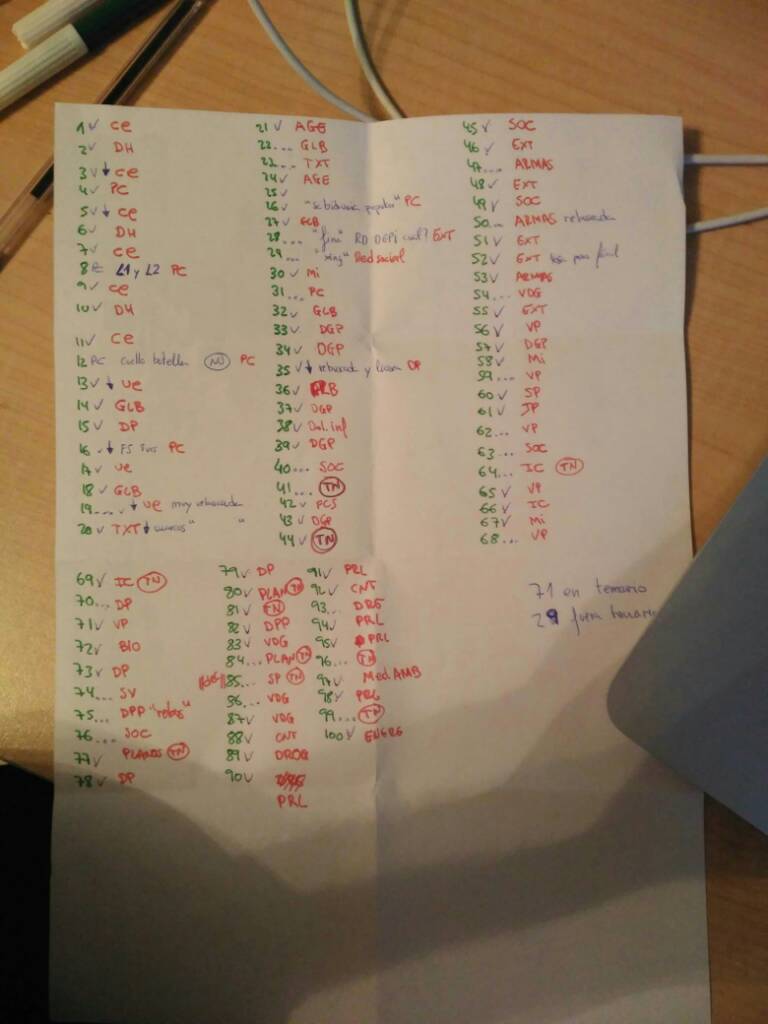 1 ✓ CE
2 ✓ DH
3 ✓ ↓ CE
4 ✓ PC
5 ✓ ↓ CE
6 ✓ DH
7 ✓ CE
8 PC L1 y L2 PC
9 ✓ CE
10 ✓ DH
11 ✓ CE
12 PC cuello botella NO PC
13 ✓ ↓ UE
14 ✓ GLB
15 ✓ DP
16 ✓ ↓ PC
17 ✓ UE
18 ✓ GLB
19.... ↓ UE muy rebuscada
20 ✓ TXT ↓ " "
21 ✓ AGE
22... GLB
23... TXT
24 ✓ AGE
25 ✓
26 ✓ "sabiduria popular" PC
27 ✓ GLB
28... "fina" RD DEPi cual? EXT
29... "xing" Red social
30 ✓ Mi
31... PC
32 ✓ GLB
33 ✓ DGP
34 ✓ DGP
35 ✓ ↓ rebuscada y DP
36 ✓ GLB
37 ✓ DGP
38 ✓ Del. inf
39 ✓ DGP
40... SOC
41... TN
42 ✓ PCS
43 ✓ DGP
44 ✓ TN
45 ✓ SOC
46 ✓ EXT
47... ARMAS
48 ✓ EXT
49 ✓ SOC
50... ARMAS rebuscada
51 ✓ EXT
52 ✓ EXT
53 ✓ ARMAS
54... VDG
55 ✓ EXT
56 ✓ VP
57 ✓ DGP
58 ✓ Mi
59... VP
60 ✓ SP
61 ✓ JP
62... VP
63... SOC
64... IC TN
65 ✓ VP
66 ✓ IC
67 ✓ Mi
68... VP
69 ✓ IC TN
70... DP
71 ✓ VP
72 ✓ BIO
73 ✓ DP
74... SV
75... DPP "rebus"
76... SOC
77 ✓ PLANOS TN
78 ✓ DP
79 ✓ DP
80 ✓ PLAN TN
81 ✓ TN
82 ✓ DPP
83 ✓ VDG
84... PLAN TN
85... SP TN
86... VDG
87 ✓ VDG
88 ✓ CNT
89 ✓ DROG
90 ✓
PRL
91 ✓ PRL
92 ✓ CNT
93... DRG
94 ✓ PRL
95 ✓ PRL
96... TN
97 ✓ Med. AMB
98 ✓ PRL
99... TN
100 ✓ ENERG
71 en temario
29 fuera temario